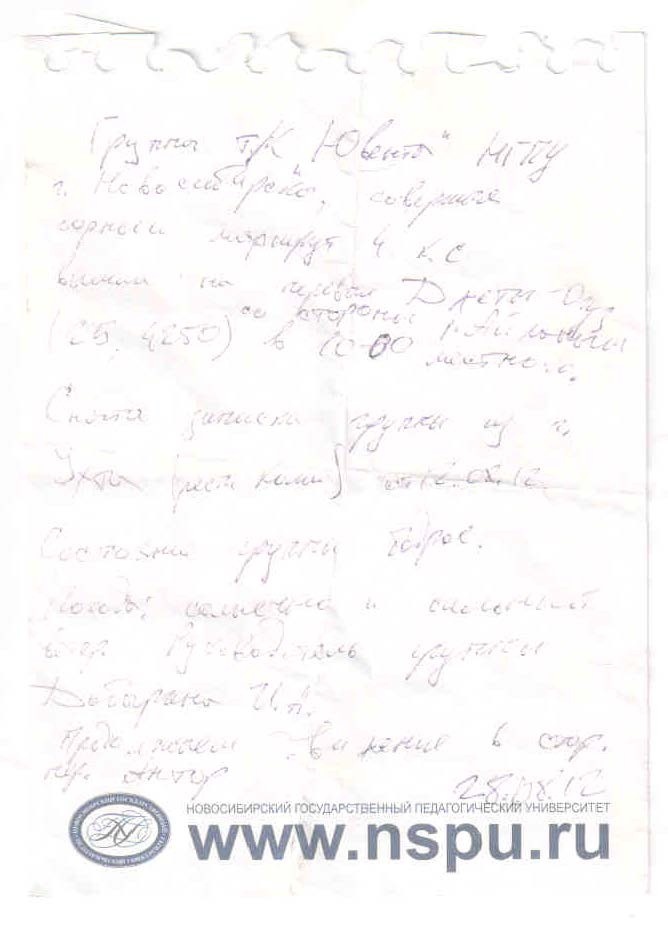 Группа т/к "Ювента" НГПУ
г. Новосибирска, соверша
горный маршрут 4 к.с
на перевал Джеты-Огуз
со стороны
(2Б, 4250) в 10-00 местного.
Снята записка группы из г.
Ухта (респ Коми) от 12.08.12
Состояние группы бодрое.
солнечно и сильный
ветер Руководитель группы
И.А.
Продолжаем движение в стор.
пер. Антор
28.08.12
НОВОСИБИРСКИЙ ГОСУДАРСТВЕННЫЙ ПЕДАГОГИЧЕСКИЙ УНИВЕРСИТЕТ
www.nspu.ru